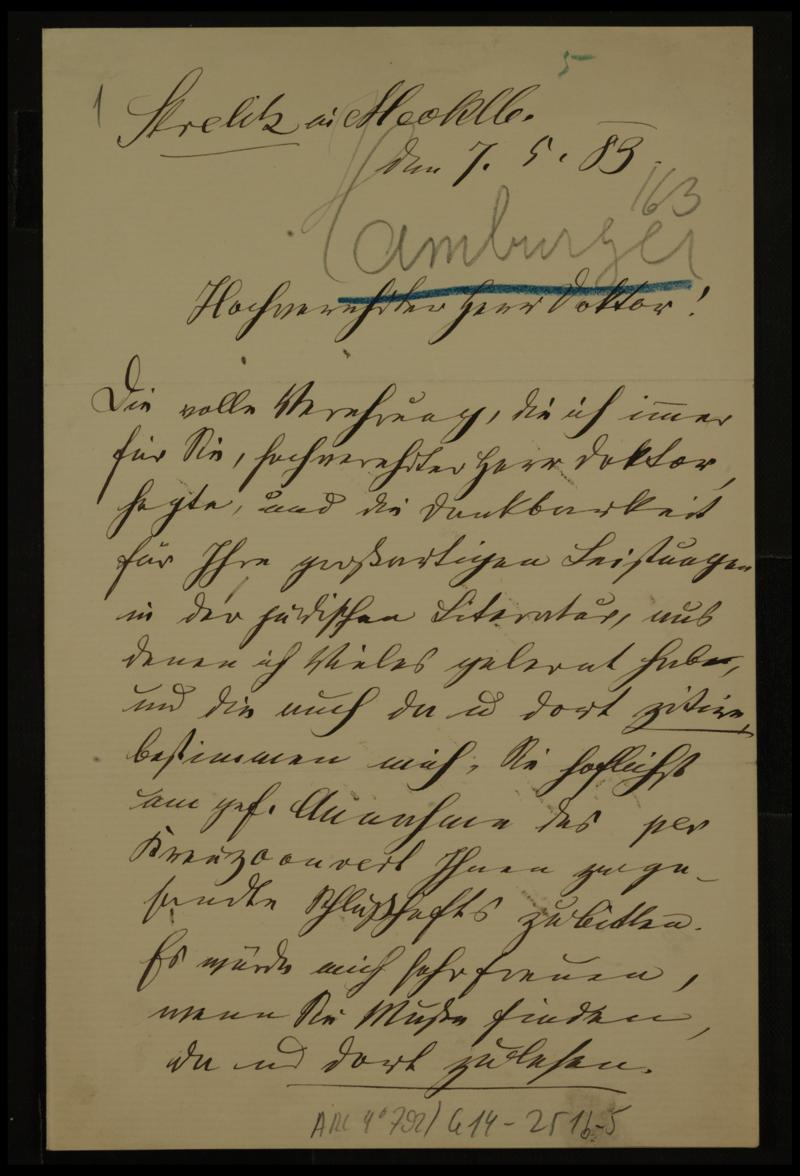 1
5
Strelitz in Mecklb.
den 7. 5. 83.
163
Hamburger
Hochverehrter Herr Doktor!
Die volle Verehrung, die ich immer
für Sie, hochverehrter Herr Doktor,
hegte, und die Dankbarkeit
für Ihre großartigen Leistungen
in der jüdischen Literatur, aus
denen ich Vieles gelernt habe,
und die auch da u dort zitire,
bestimmen mich, Sie höflichst
um gef. Annahme des per
Kreuzcouvert Ihnen zuge-
sandte Schlußhefts zu bitten.
Es würde mich sehr freuen,
wenn Sie Muße finden,
da und dort zu lesen.
ARC 4° 792/ G14-251b-5